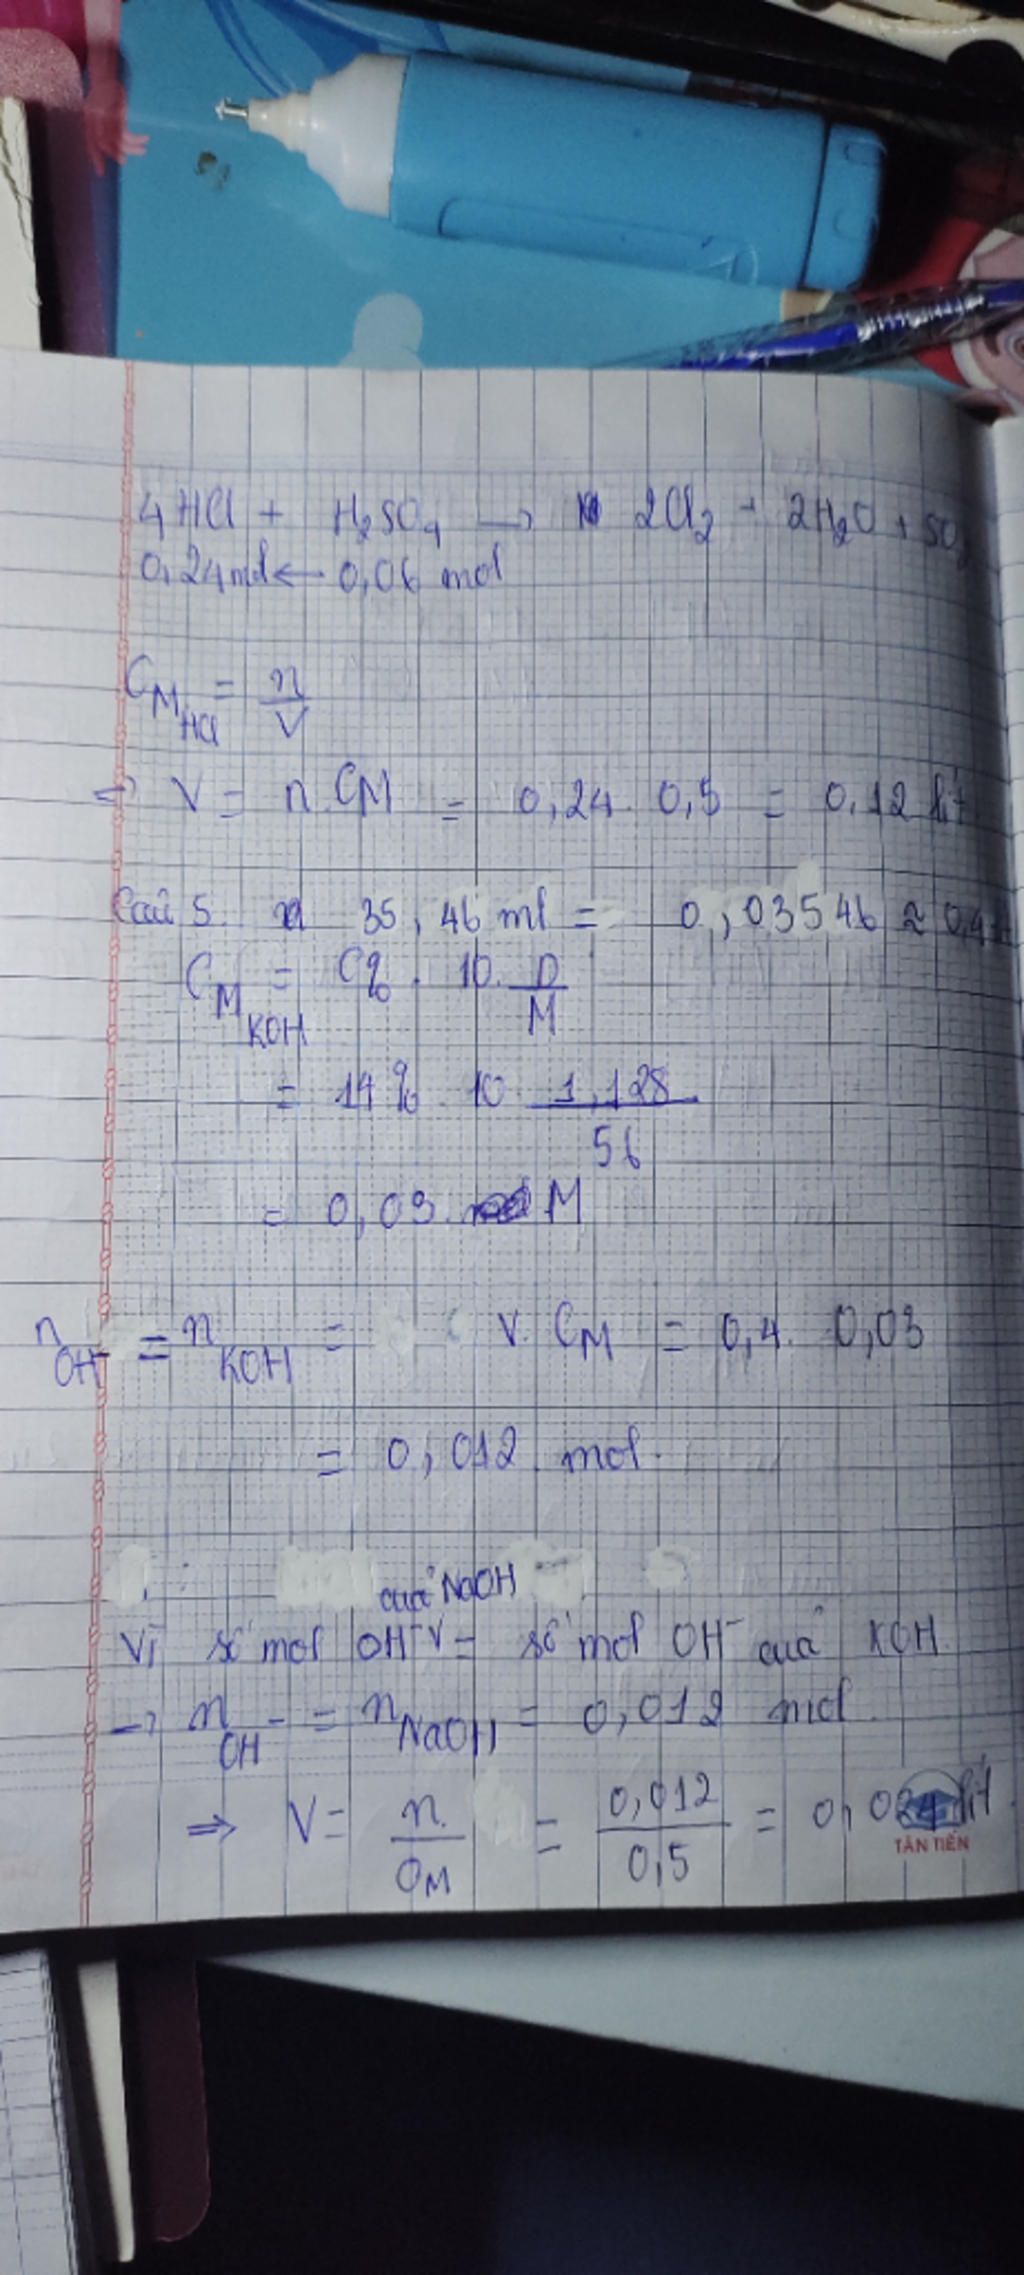 4 HCl + H₂SO₄ → 2Cl₂ + 2H₂O + SO₂
0,24 mol ← 0,06 mol
C_M_HCl = n/V
⇒ V = n. CM = 0,24. 0,5 = 0,12 lít
Câu 5. 35,46 ml = 0,03546 ≈ 0,4
C_M_KOH = C%. 10. D/M
= 14% 10 1,128/56
= 0,03 M
n_OH⁻ = n_KOH = V. CM = 0,4. 0,03
= 0,012 mol.
của NaOH
Vì số mol OH⁻ v = số mol OH⁻ của KOH.
→ n_OH⁻ = n_NaOH = 0,012 mol.
⇒ V = n/CM = 0,012/0,5 = 0,024 lít.
TÂN TIẾN